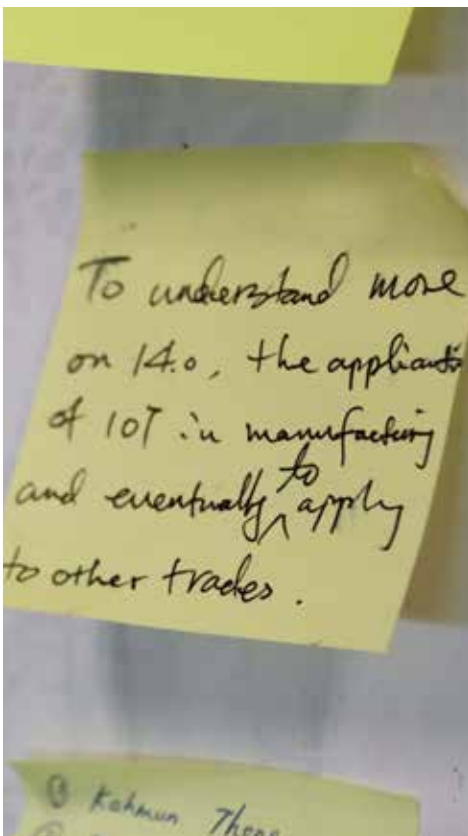 To understand more
on I4.0, the application
of IOT in manufacturing
and eventually to apply
to other trades.
Kahmun